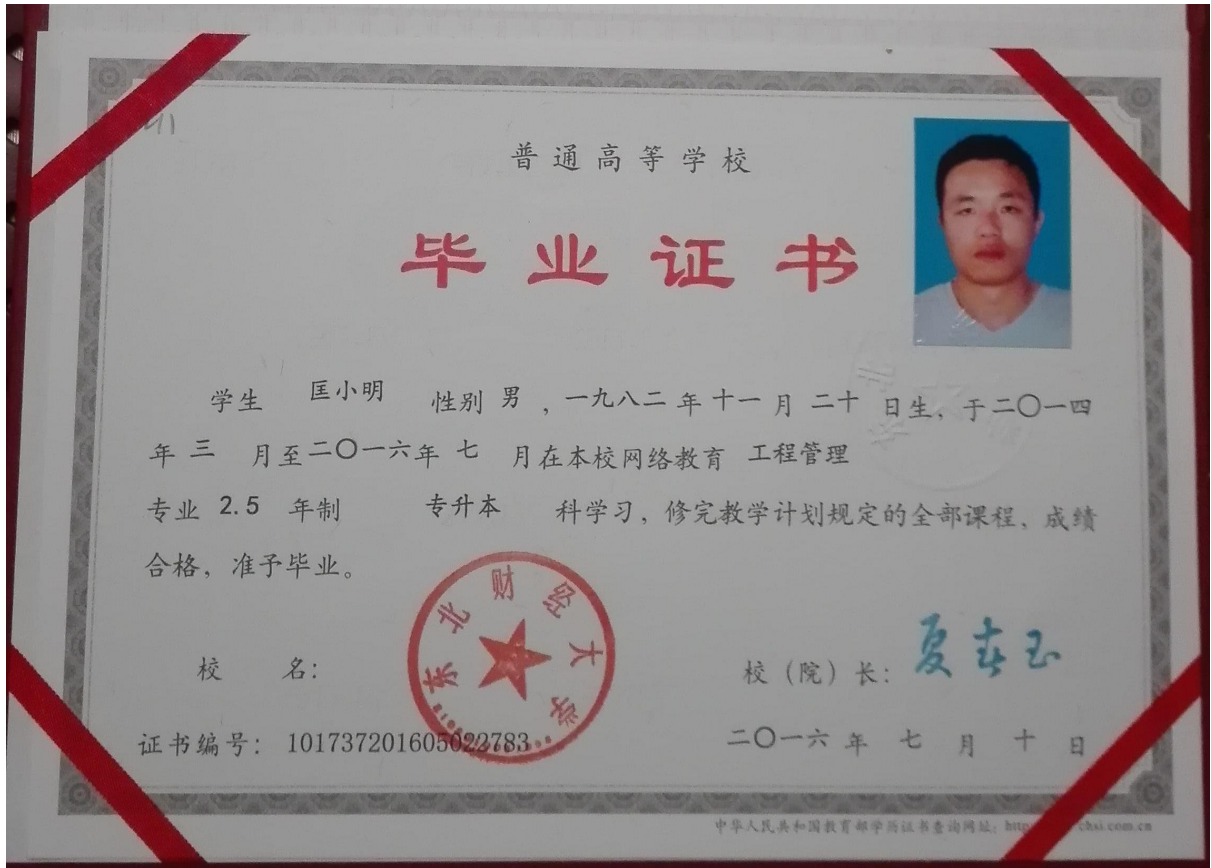 普通高等学校
毕业证书
学生 匡小明 性别 男 ，一九八二 年 十一 月 二十 日生，于二〇一四
年 三 月至二〇一六年 七 月在本校网络教育 工程管理
专业 2.5 年制 专升本 科学习，修完教学计划规定的全部课程，成绩
合格，准予毕业。
东北财经大学
校 名： 校（院）长：夏春玉
证书编号： 101737201605022783 二〇一六 年 七 月 十 日
中华人民共和国教育部学历证书查询网址：http chsi.com.cn